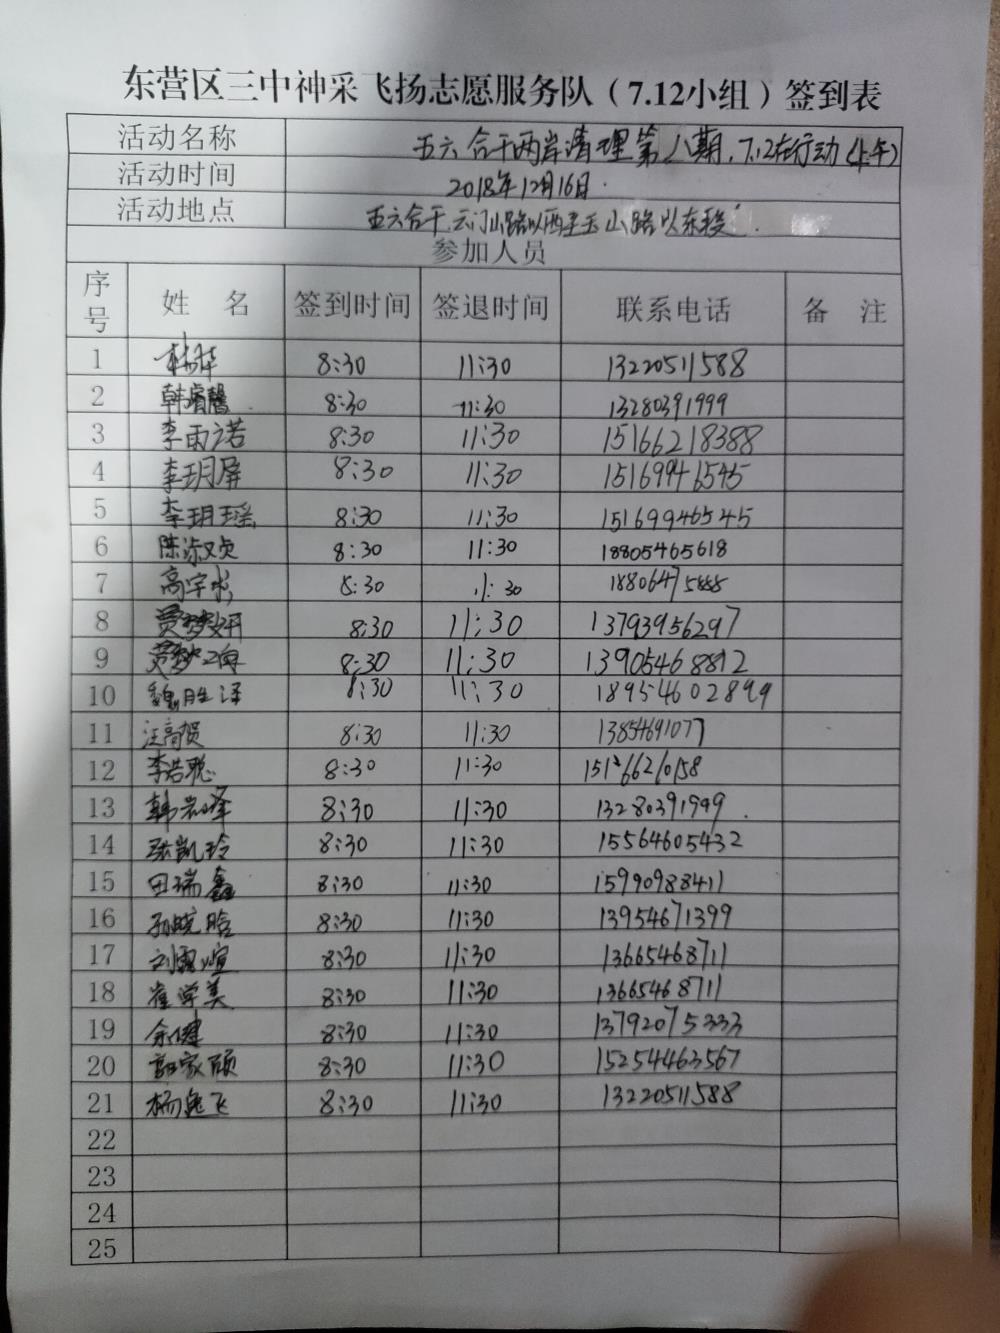 东营区三中神采飞扬志愿服务队（7.12小组）签到表
活动名称 五六合干两岸清理第八期，7.12在行动（上午）
活动时间 2018年12月16日.
活动地点 五六合干，云门山路以西至玉山路以东段.
参加人员
序号 姓 名 签到时间 签退时间 联系电话 备 注
1 杨华 8:30 11:30 13220511588
2 韩睿馨 8:30 11:30 13280391999
3 李雨诺 8:30 11:30 15166218388
4 李玥屏 8:30 11:30 15169946545
5 李玥瑶 8:30 11:30 15169946545
6 陈淑贞 8:30 11:30 18805465618
7 高宇 8:30 11:30 18806475888
8 贾梦妍 8:30 11:30 13793956297
9 贾梦 8:30 11:30 13905468812
10 魏胜泽 8:30 11:30 18954602899
11 汪高贺 8:30 11:30 13854691077
12 李浩聪 8:30 11:30 15166210158
13 韩岩峰 8:30 11:30 13280391999.
14 张凯玲 8:30 11:30 15564605432
15 田瑞鑫 8:30 11:30 15990988411
16 孙晓晗 8:30 11:30 13954671399
17 刘 煊 8:30 11:30 13665468711
18 崔学美 8:30 11:30 13665468711
19 余健 8:30 11:30 13792075333
20 郭家硕 8:30 11:30 15254463567
21 杨逸飞 8:30 11:30 13220511588
22
23
24
25